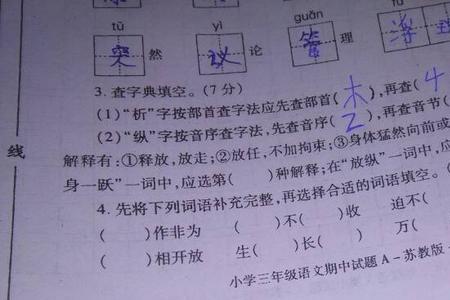 tū yì guǎn fú
突然 议论 管理 浮
3. 查字典填空。(7 分)
(1)“析”字按部首查字法应先查部首( 木 ),再查( 4
(2)“纵”字按音序查字法,先查音序( Z ),再查音节(
解释有:①释放,放走;②放任,不加拘束;③身体猛然向前或
身一跃”一词中,应选第( )种解释;在“放纵”一词中,应
4. 先将下列词语补充完整,再选择合适的词语填空。(
( )作非为 ( )不( )收 迫不(
( )相开放 生( )长( ) 万(
线
小学三年级语文期中试题 A－苏教版